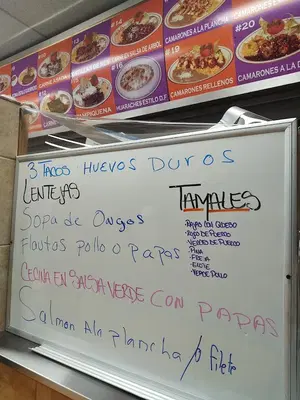 #14
CAMARONES A LA PLANCHA
CAMARONES A LA D
#20
#19
CAMARONES RELLENOS
CAMARONES A LA D
#16
HUARACHES ESTILO D.F
3 Tacos HUEVOS DUROS
LENTEJAS
Sopa de Ongos
Flautas pollo o papas
CECINA EN SALSA VERDE CON PAPAS
Salmon Ala plancha / o filete
TAMALES
-RAJAS CON QUESO
-ROJO DE PUERCO
-VERDES DE PUERCO
-PIÑA
-FRESA
-ELOTE
-VERDE POLLO